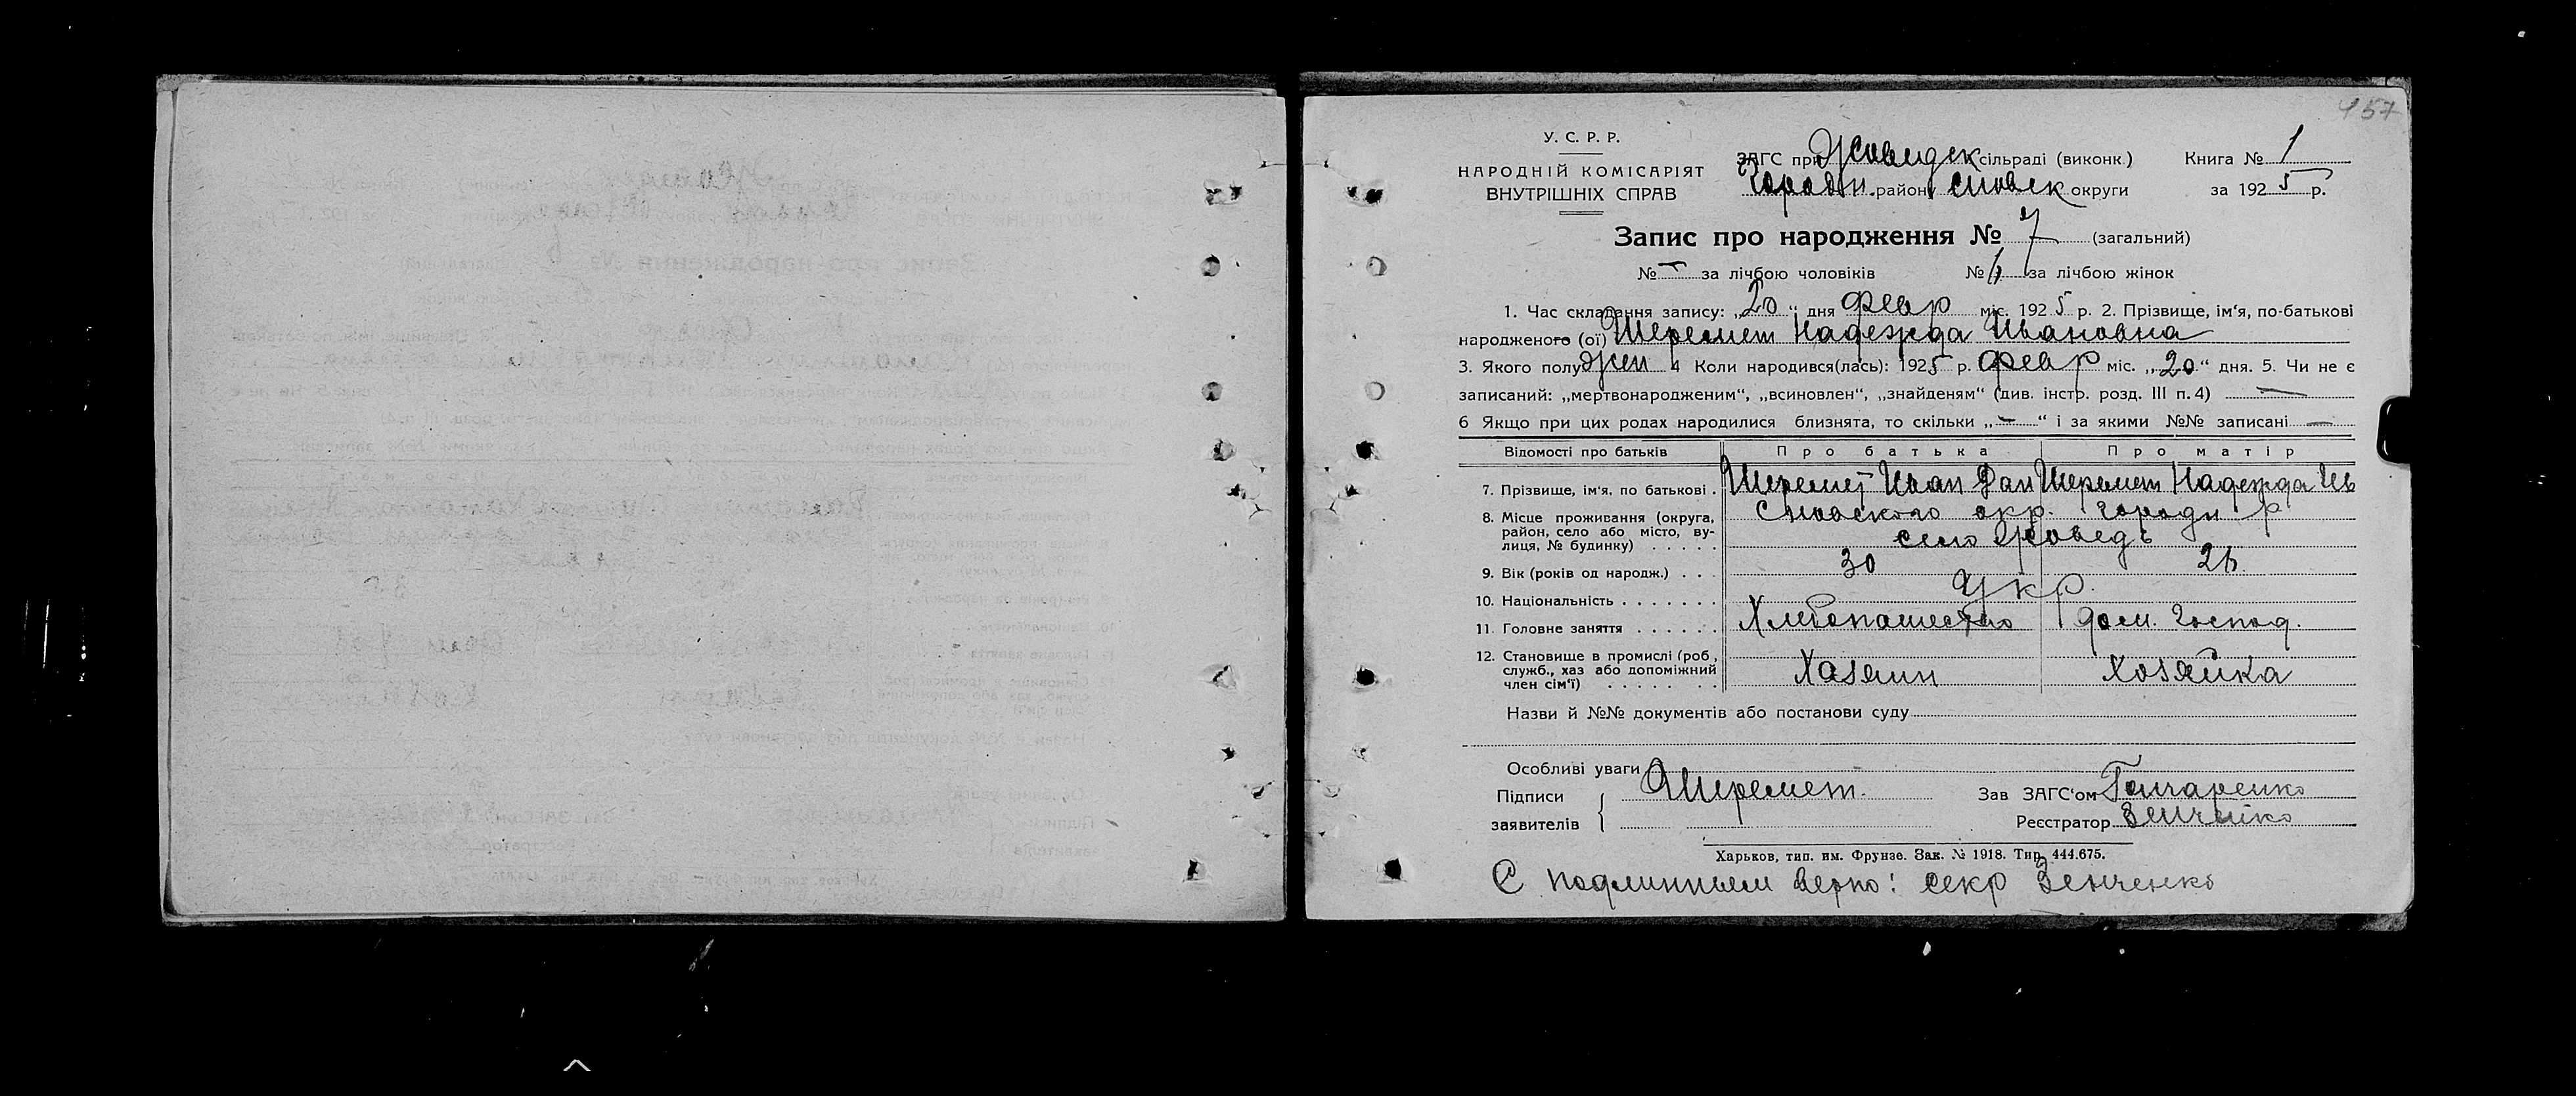 157
У. С. Р. Р.
НАРОДНІЙ КОМІСАРІЯТ
ВНУТРІШНІХ СПРАВ
ЗАГС при Жоведек сільраді (виконк.) Книга № 1
Городн. району Сновск округи за 1925 р.
Запис про народження № 7 (загальний)
№ — за лічбою чоловіків № за лічбою жінок
1. Час складання запису: „20“ дня февр міс. 1925 р. 2. Прізвище, ім'я, по-батькові
народженого (ої) Шеремет Надежда Ивановна
3. Якого полу жен 4 Коли народився(лась): 1925 р. февр міс. „20“ дня. 5. Чи не є
записаний: „мертвонародженим“, „всиновлен“, „знайденям“ (див. інстр. розд. III п. 4) —
6 Якщо при цих родах народилися близнята, то скільки „—“ і за якими №№ записані —
Відомості про батьків Про батька Про матір
7. Прізвище, ім'я, по батькові . Шеремет Иван Дан Шеремет Надежда Ив
8. Місце проживання (округа, район, село або місто, вулиця, № будинку) . . . . . Сновского окр. Городн р
село Жоведь
9. Вік (років од народж.) . . . 30 26
10. Національність . . . . . . . Укр.
11. Головне заняття . . . . . . Хлебопашество дом. господ.
12. Становище в промислі (роб., служб., хаз або допоміжний член сім'ї) . . . . . . . Хазяин Хозяйка
Назви й №№ документів або постанови суду
Особливі уваги
Підписи заявителів Шеремет. Зав ЗАГС'ом Гончаренко
Реєстратор Зенченко
Харьков, тип. им. Фрунзе. Зак. № 1918. Тир. 444.675.
С подлинным верно: секр Зенченко